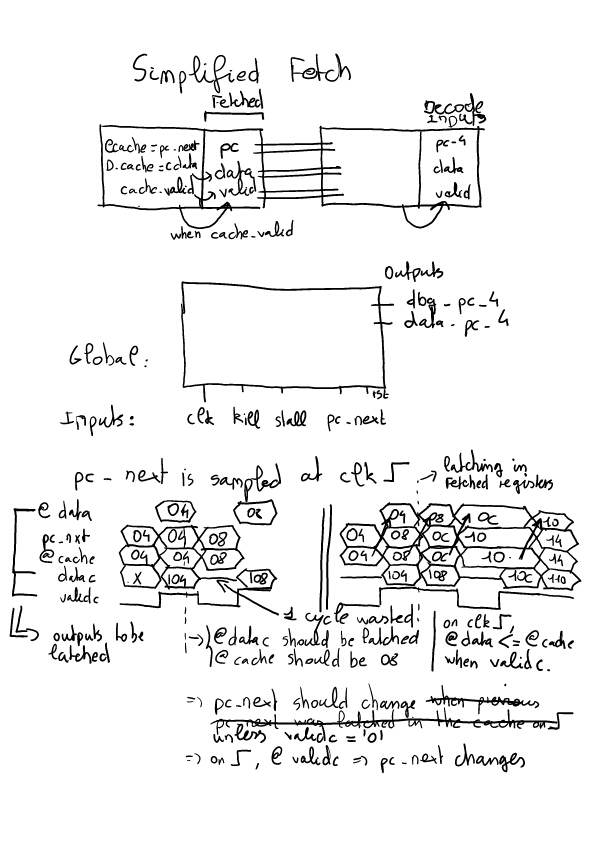 Simplified Fetch
Fetched
Decode
Inputs
@cache = pc-next
D.cache = Cdata
cache.valid
pc
data
valid
pc-4
data
valid
when cache_valid
Outputs
dbg - pc_4
data - pc_4
Global:
rst
Inputs: clk kill stall pc_next
pc - next is sampled at clk
→ latching in
Fetched registers
@ data 04 08
pc_nxt 04 04 08
@ cache 04 04 08
data c X 104 108
valid c
04 08 0C 10
04 08 0C 10 14
04 08 0C 10 14
104 108 10C 110
outputs to be
latched
1 cycle wasted.
→ @ data c should be latched
@ cache should be 08
on clk,
@ data <= @ cache
when valid c.
=> pc-next should change when previous
pc-next was latched in the cache on
unless validc = '0'
=> on , @ validc => pc_next changes